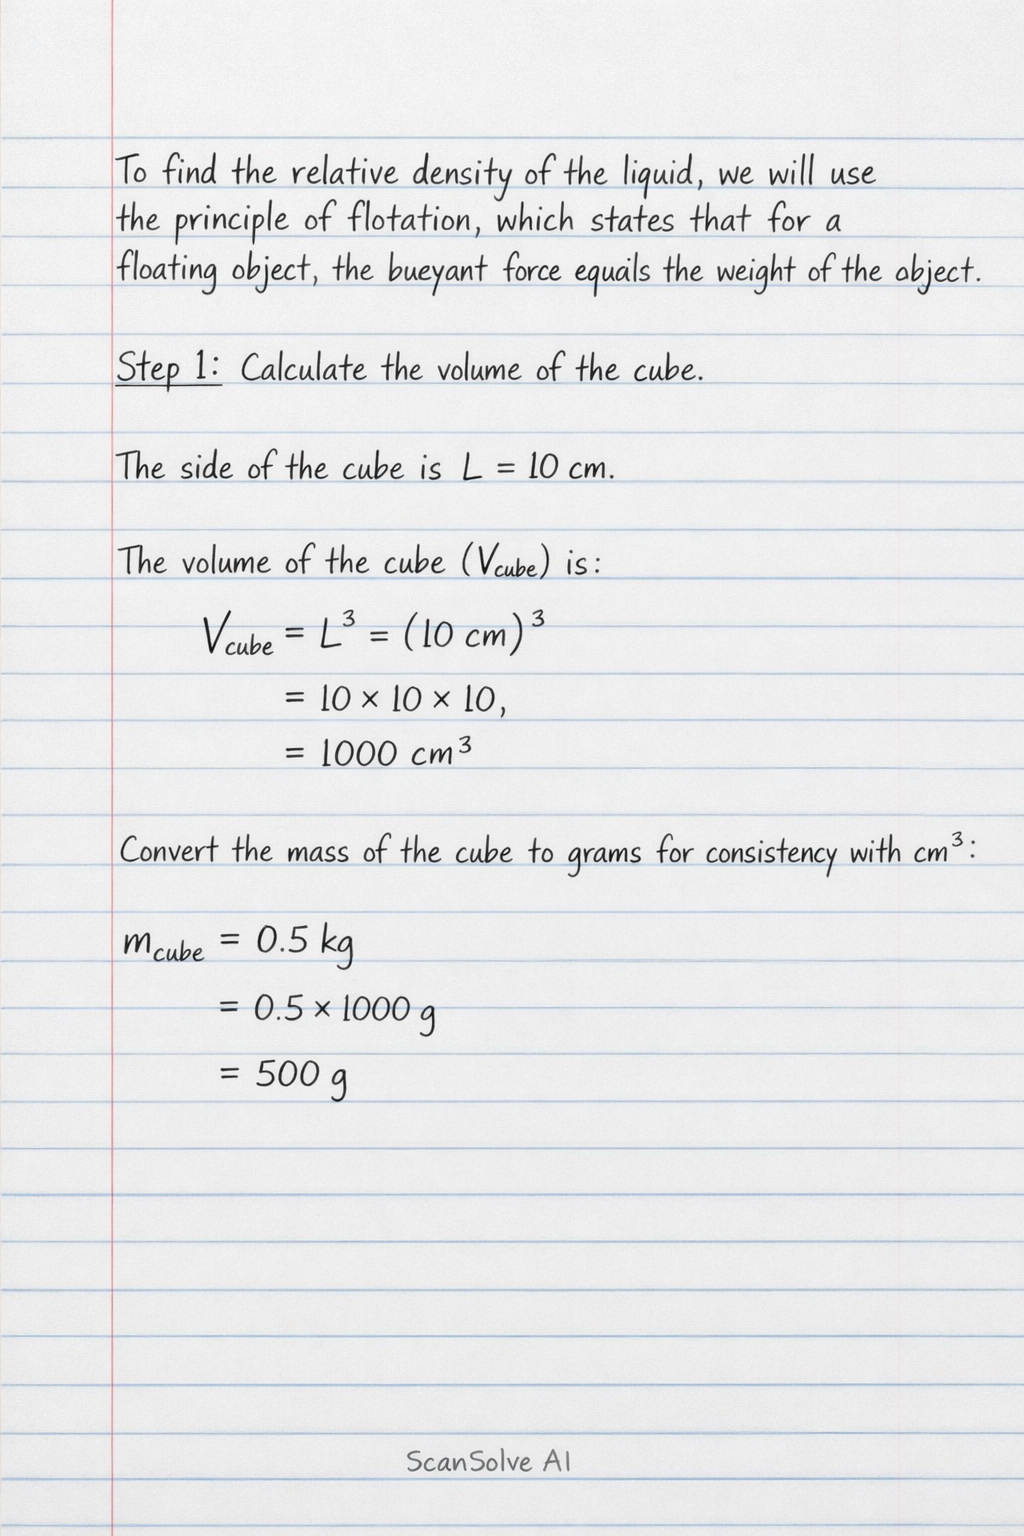 To find the relative density of the liquid, we will use
the principle of flotation, which states that for a
floating object, the bueyant force equals the weight of the object.
Step 1: Calculate the volume of the cube.
The side of the cube is L = 10 cm.
The volume of the cube (Vcube) is:
Vcube = L³ = (10 cm)³
= 10 × 10 × 10,
= 1000 cm³
Convert the mass of the cube to grams for consistency with cm³:
mcube = 0.5 kg
= 0.5 × 1000 g
= 500 g
ScanSolve AI